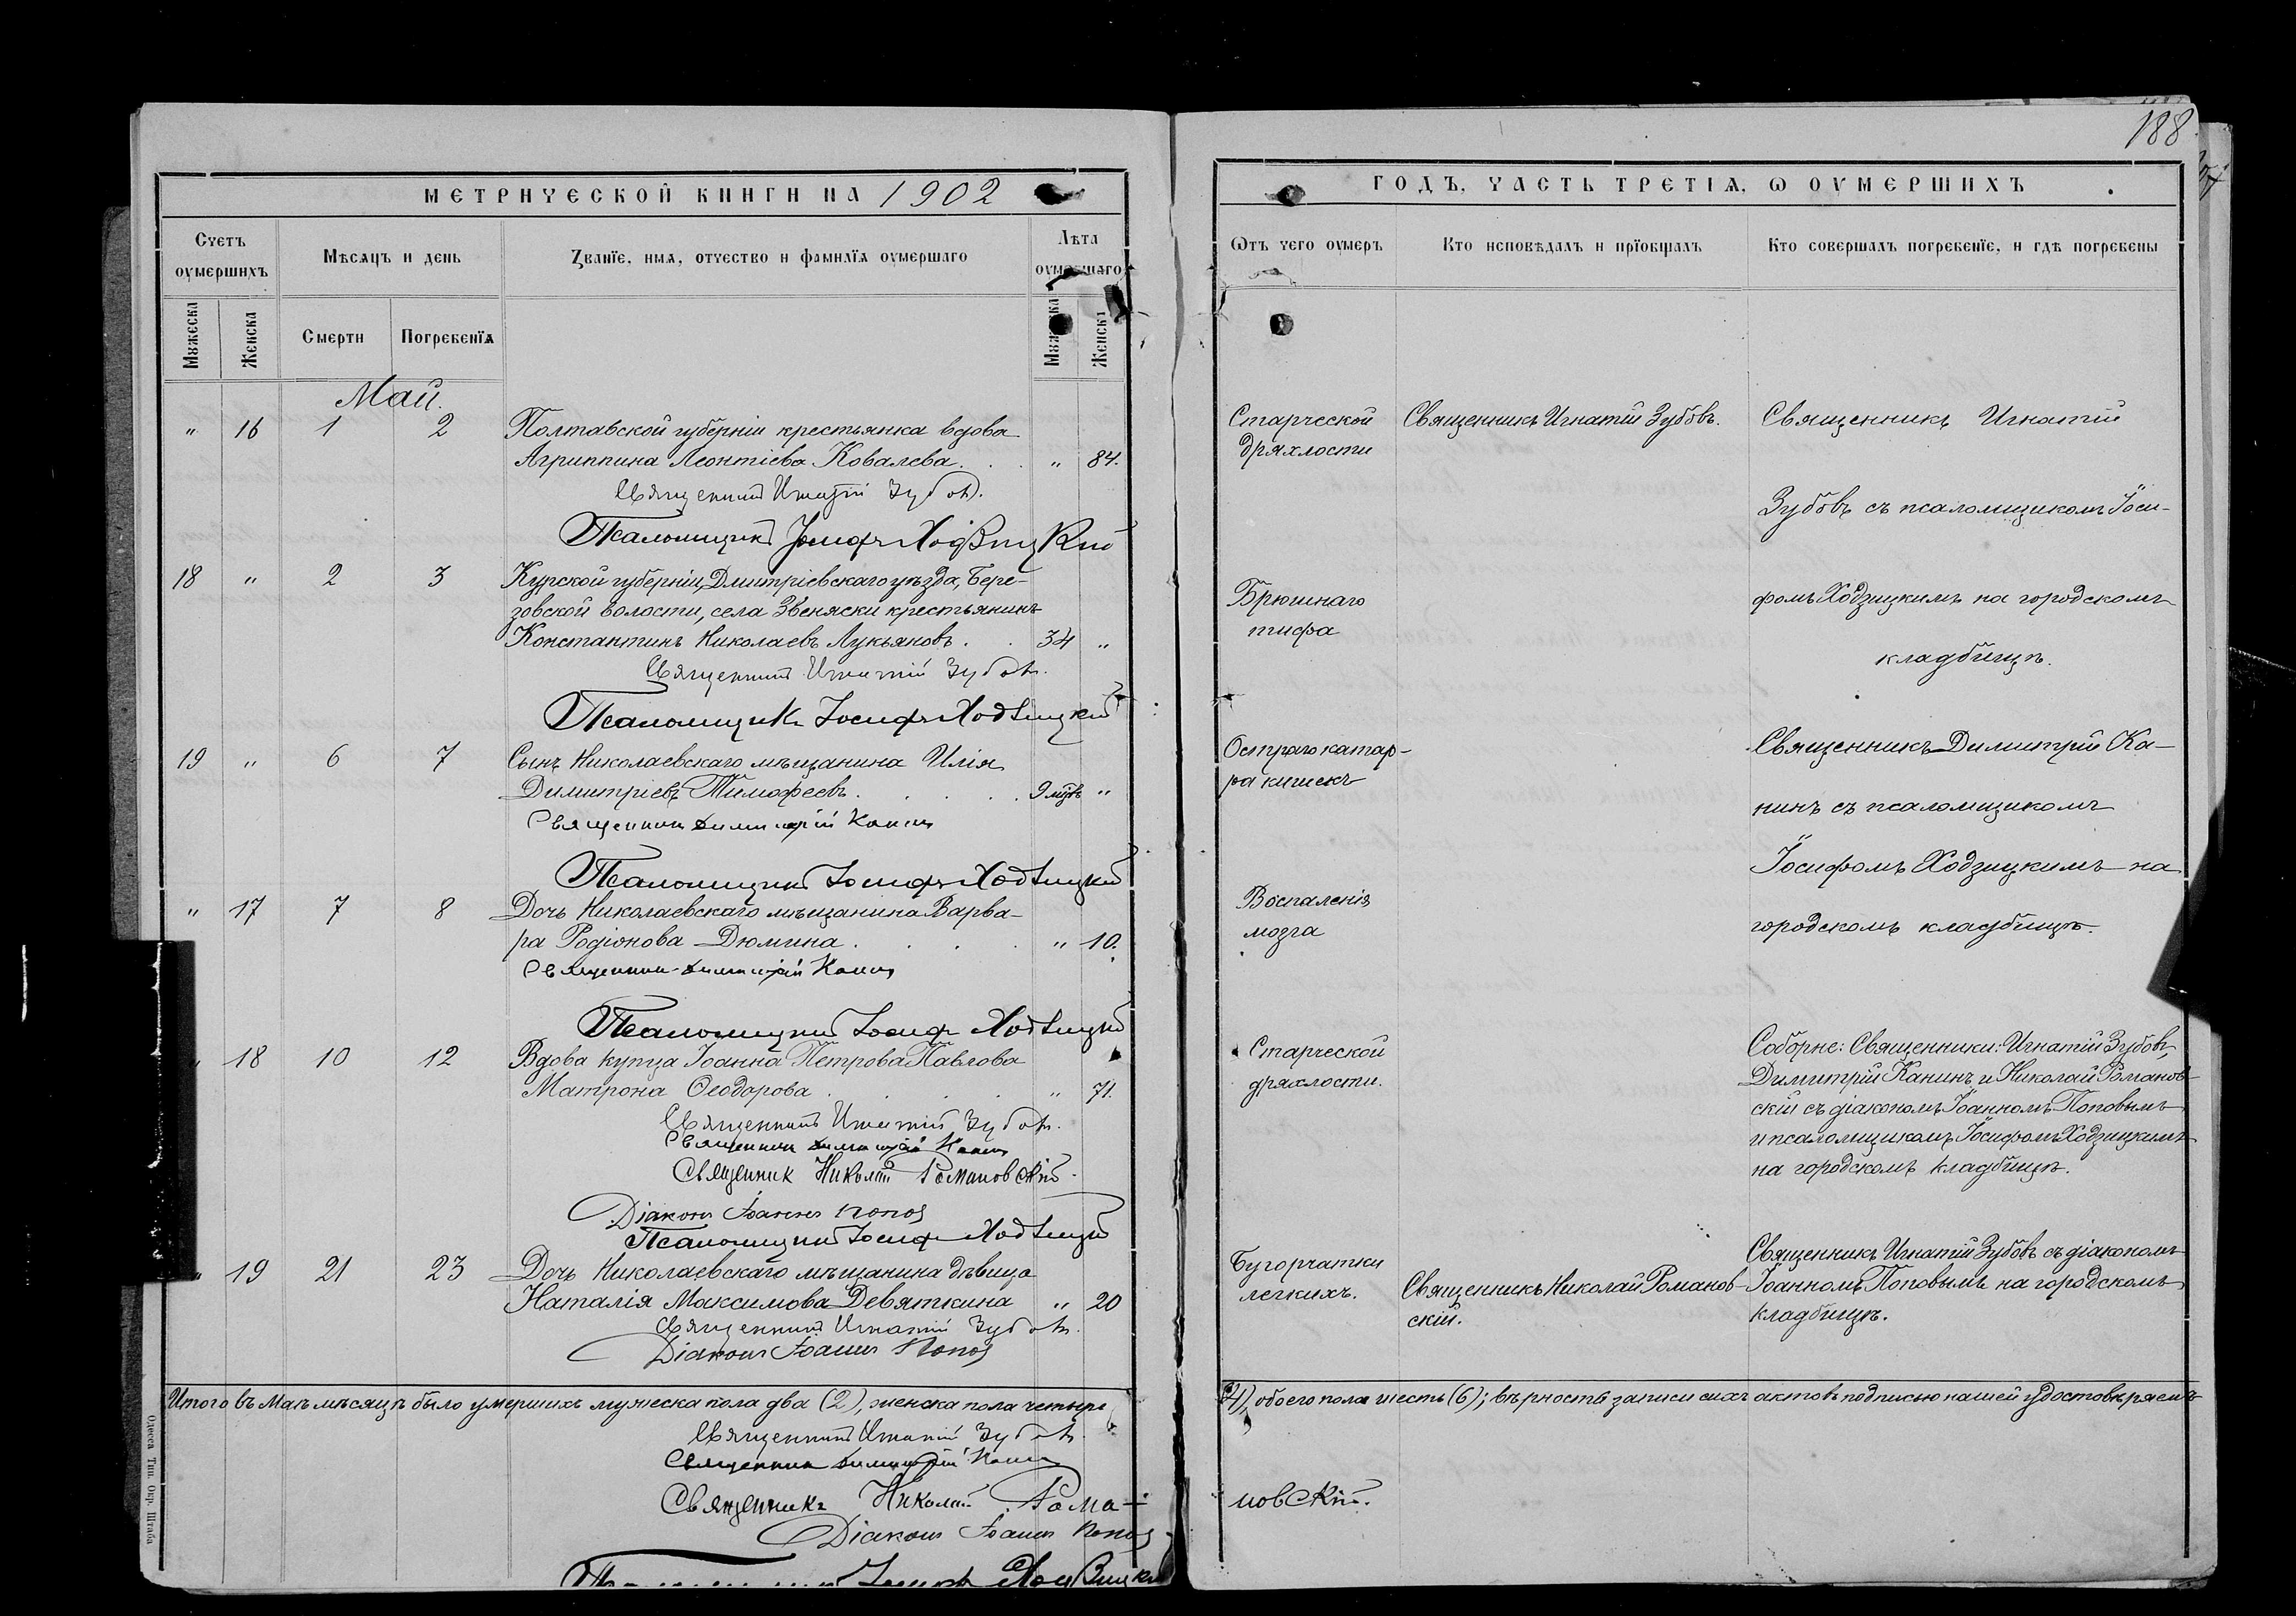 188
МЕТРИЧЕСКОЙ КНИГИ НА 1902
Счетъ оумершихъ
Мѣсяцъ и день
Званїе, имя, отчество и фамилїя оумершаго
Лѣта оумершаго
Мужеска
Женска
Смерти
Погребенїя
Мужеска
Женска
Май.
" 16 1 2 Полтавской губерніи крестьянка вдова
Агриппина Леонтіева Ковалева . . " 84.
Священникъ Игнатій Зубовъ.
Псаломщикъ Іосифъ Ходзицкій
18 " 2 3 Курской губерніи, Дмитріевскаго уѣзда, Бере-
зовской волости, села Звеняски крестьянинъ
Константинъ Николаевъ Лукьяновъ . . 34 "
Священникъ Игнатій Зубовъ.
Псаломщикъ Іосифъ Ходзицкій
19 " 6 7 Сынъ Николаевскаго мѣщанина Илія
Димитріевъ Тимофеевъ . . . . . 9 мѣс "
Священникъ Димитрій Канинъ
Псаломщикъ Іосифъ Ходзицкій
" 17 7 8 Дочь Николаевскаго мѣщанина Варва-
ра Родіонова Дюмина . . . . " 10.
Священникъ Димитрій Канинъ
Псаломщикъ Іосифъ Ходзицкій
" 18 10 12 Вдова купца Іоанна Петрова Павлова
Матрона Ѳеодорова . . . . " 71.
Священникъ Игнатій Зубовъ.
Священникъ Димитрій Канинъ
Священник Николай Романовскій.
Діаконъ Іоаннъ Попов
Псаломщикъ Іосифъ Ходзицкій
" 19 21 23 Дочь Николаевскаго мѣщанина дѣвица
Наталія Максимова Девяткина " 20
Священникъ Игнатій Зубовъ.
Діаконъ Іоаннъ Попов
Итого въ маѣ мѣсяцѣ было умершихъ мужеска пола два (2), женска пола четыре
Священникъ Игнатій Зубовъ.
Священникъ Димитрій Канинъ
Священникъ Николай Рома-
Діаконъ Іоаннъ Попов
Одесса Тип. Окр. Штаба
ГОДЪ, ЧАСТЬ ТРЕТІЯ, Ѡ ОУМЕРШИХЪ
Ѡтъ чего оумеръ
Кто исповѣдалъ и прїобщалъ
Кто совершалъ погребенїе, и гдѣ погребены
Старческой
дряхлости
Священникъ Игнатій Зубовъ.
Священникъ Игнатій
Зубовъ съ псаломщикомъ Іоси-
фомъ Ходзицкимъ на городскомъ
кладбищѣ.
Брюшнаго
тифа
Остраго катар-
ра кишекъ
Священникъ Димитрій Ка-
нинъ съ псаломщикомъ
Іосифомъ Ходзицкимъ на
городскомъ кладбищѣ.
Воспаленія
мозга
Старческой
дряхлости.
Соборне: Священники: Игнатій Зубовъ,
Димитрій Канинъ и Николай Романов-
скій съ діакономъ Іоанномъ Поповымъ
и псаломщикомъ Іосифомъ Ходзицкимъ
на городскомъ кладбищѣ.
Бугорчатки
легкихъ.
Священникъ Николай Романов-
скій.
Священникъ Игнатій Зубовъ съ діакономъ
Іоанномъ Поповымъ на городскомъ
кладбищѣ.
(4), обоего пола шесть (6); вѣрность записи сихъ актовъ подписью нашей удостовѣряемъ
новскій.